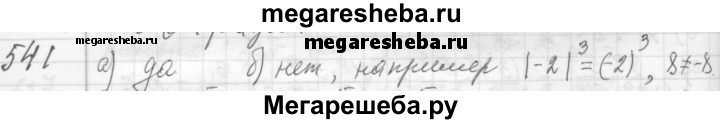 megaresheba.ru
megaresheba.ru megaresheba.ru
541 а) да б) нет, например |-2|³=(-2)³, 8≠-8
Мегарешеба.ру